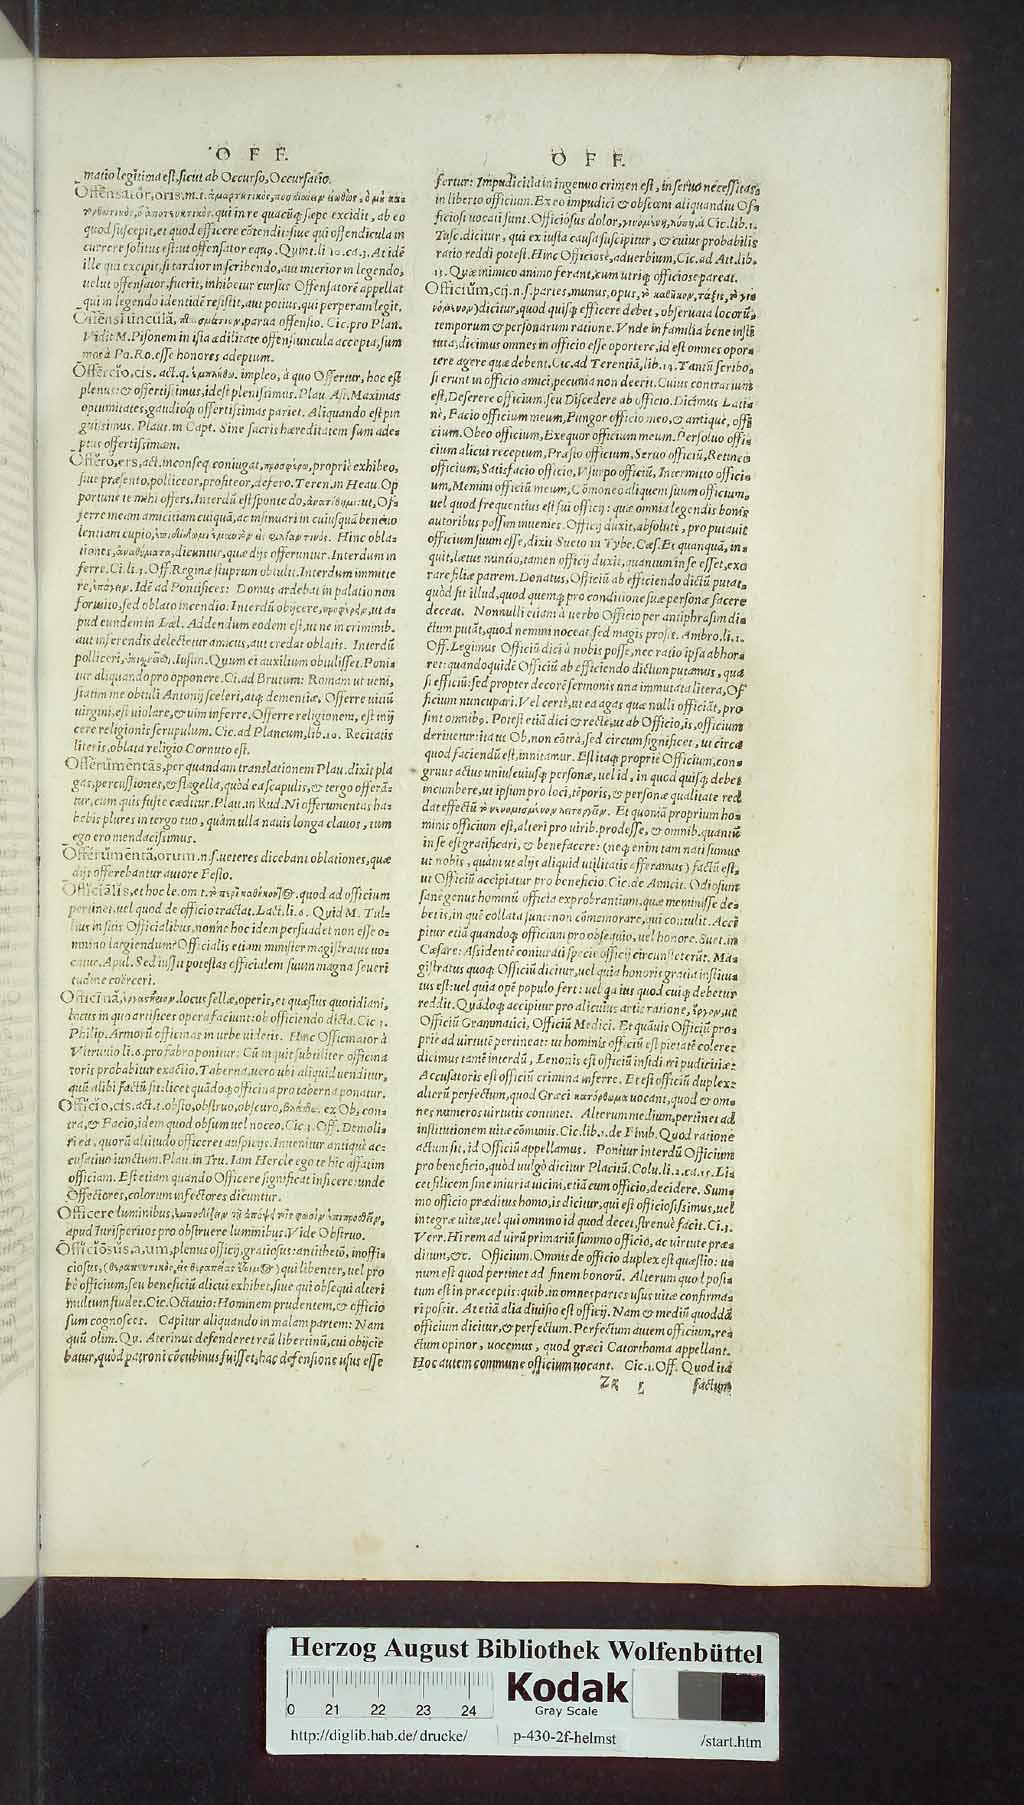 O F F.
matio legitima est, sicut ab Occurso, Occursatio.
Offensator, oris. m. t. qui in re quacūq; sæpe excidit, ab eo
quod suscepit, et quod efficere cōtendit: siue quā offendicula in
currere solitus est: ut offensator equꝯ. Quint. li. 10. ca. 3. At idē
ille qui excipit, si tardior in scribendo, aut in legendo,
uelut offensator, fuerit, inhibetur cursus Offensatorē appellat
qui in legendo identidē resistit, aut potius, qui perperam legit.
Offensiuncula, parua offensio. Cic. pro Plan.
Vidit M. Pisonem in ista ædilitate offensiuncula accepta, sum
mos à Po. Ro. esse honores adeptum.
Offercio, cis. act. q. ἐμπλήθω. impleo, à quo Offertur, hoc est
plenus: & offertissimus, id est plenissimus. Plau. Asi. Maximas
opimitates, gaudioq; offertissimas pariet. Aliquando est pin
guissimus. Plaut. in Capt. Sine sacris hæreditatem sum ade-
ptus offertissimam.
Offero, ers, act. inconseq. coniugat, προσφέρω, propriè exhibeo,
siue præsento, polliceor, profiteor, defero. Teren. in Heau. Op
portune te mihi offers. Interdū est sponte do, ut, Of-
ferre meam amicitiam cuiquā, ac insinuari in cuiusquā beneuo
lentiam cupio, Hinc obla-
tiones, ἀναθήματα, dicuntur, quæ dijs offeruntur. Interdum in
ferre. Ci. li. 3. Off. Reginæ stuprum obtulit. Interdum immitte
re, Idē ad Pontifices: Domus ardebat in palatio non
fortuito, sed oblato incendio. Interdū obijcere, ut a-
pud eundem in Læl. Addendum eodem est, ut ne in criminib.
aut inferendis delectetur amicus, aut credat oblatis. Interdū
polliceri, Iustin. Quum ei auxilium obtulisset. Poni-
tur aliquando pro opponere. Ci. ad Brutum: Romam ut ueni,
statim me obtuli Antonij sceleri, atq; dementiæ, Offerre uitiū
uirgini, est uiolare, & uim inferre. Offerre religionem, est inij
cere religionis scrupulum. Cic. ad Plancum, lib. 10. Recitatis
literis, oblata religio Cornuto est.
Offerumentas, per quandam translationem Plau. dixit pla
gas, percussiones, & flagella, quòd ea scapulis, & tergo offerā-
tur, cum quis fuste cæditur. Plau. in Rud. Ni offerumentas ha-
bebis plures in tergo tuo, quàm ulla nauis longa clauos, tum
ego ero mendacissimus.
Offerumenta, orum. n. s. ueteres dicebant oblationes, quæ
dijs offerebantur autore Festo.
Officialis, et hoc le. om. t. quod ad officium
pertinet, uel quod de officio tractat. Lact. li. 6. Quid M. Tul-
lius in suis Officialibus, nonne hoc idem persuadet non esse o-
mnino largiendum? Officialis etiam minister magistratus uo-
catur. Apul. Sed iussit potestas officialem suum magna seueri
tudine coërceri.
Officina, ἐργαστήριον. locus sellæ, operis, et quæstus quotidiani,
locus in quo artifices opera faciunt: ob officiendo dicta. Cic. 1.
Philip. Armorū officinas in urbe uidetis. Hinc Officinator à
Vitruuio li. 6. pro fabro ponitur: Cū inquit subtiliter officina
toris probabitur exactio. Taberna uero ubi aliquid uenditur,
quā alibi factū sit. licet quādoq; officina pro taberna ponatur.
Officio, cis. act. t. obsto, obstruo, obscuro, βλάπτω. ex Ob, con-
tra, & Facio, idem quod obsum uel noceo. Cic. 3. Off. Demoli-
ri ea, quorū altitudo officeret auspicijs. Inuenitur antiquè ac-
cusatiuo iunctum. Plau. in Tru. Iam Hercle ego te hic affatim
officiam. Est etiam quando Officere significat inficere: unde
Offectores, colorum infectores dicuntur.
Officere luminibus,
apud Iurisperitos pro obstruere luminibus. Vide Obstruo.
Officiosus, a, um, plenus officij, gratiosus: antitheto, inoffi-
ciosus, qui libenter, uel pro
bè officium, seu beneficiū alicui exhibet, siue qui obsequi alteri
multum studet. Cic. Octauio: Hominem prudentem, & officio
sum cognosces. Capitur aliquando in malam partem: Nam
quū olim. Qu. Aterinus defenderet reū libertinū, cui obijcie
batur, quòd patroni cōcubinus fuisset, hac defensione usus esse
O F F.
fertur: Impudicitia in ingenuo crimen est, in seruo necessitas,
in liberto officium. Ex eo impudici & obscœni aliquandiu Of-
ficiosi uocati sunt. Officiosus dolor, à Cic. lib. 3.
Tusc. dicitur, qui ex iusta causa suscipitur, & cuius probabilis
ratio reddi potest. Hinc Officiosè, aduerbium, Cic. ad Att. lib.
13. Quæ inimico animo ferant, cum utriq; officiose pareat.
Officium, cij. n. s. partes, munus, opus, τὸ καθῆκον, τάξις,
dicitur, quod quisq; efficere debet, obseruata locorū,
temporum & personarum ratione. Vnde in familia bene insti
tuta, dicimus omnes in officio esse oportere, id est omnes opor-
tere agere quæ debent. Cic. ad Terentiā, lib. 14. Tantū scribo,
si erunt in officio amici, pecunia non deerit. Cuius contrarium
est, Deserere officium, seu Discedere ab officio. Dicimus Lati-
nè, Facio officium meum, Fungor officio meo, & antiquè, offi
cium. Obeo officium, Exequor officium meum. Persoluo offi-
cium alicui receptum, Præsto officium, Seruo officiū, Retineo
officium, Satisfacio officio, Vsurpo officiū, Intermitto offici-
um, Memini officiū meum, Cōmoneo aliquem suum officium,
uel quod frequentius est sui officij: quæ omnia legendis bonis
autoribus possim inuenies. Officij duxit, absolutè, pro putauit
officium suum esse, dixit Sueto in Tybe. Cæs. Et quanquā, in-
quit, lætus nuntio, tamen officij duxit, quantum in se esset, exo
rare filiæ patrem. Donatus, Officiū ab efficiendo dictū putat,
quòd sit illud, quod quemq; pro conditione suæ personæ facere
deceat. Nonnulli etiam à uerbo Officio per antiphrasim di-
ctum putāt, quod nemini noceat, sed magis prosit. Ambro. li. 1.
Off. Legimus Officiū dici à nobis posse, nec ratio ipsa abhor-
ret: quandoquidē Officiū ab efficiendo dictum putamus, quā
si efficiū: sed propter decorē sermonis una immutata litera, Of
ficium nuncupari. Vel certè, ut ea agas quæ nulli officiāt, pro
sint omnibꝯ. Potest etiā dici & rectè, ut ab Officio, is, officium
deriuetur: ita ut Ob, non cōtrà, sed circum significet, ut circa
quod faciendū est, innitamur. Est itaq; propriè Officium, con-
gruus actus uniuscuiusq; personæ, uel id, in quod quisq; debet
incumbere, ut ipsum pro loci, tēporis, & personæ qualitate red
dat effectū Et quoniā proprium ho-
minis officium est, alteri pro uirib. prodesse, & omnib. quantū
in se est gratificari, & benefacere: (neq; enim tam nati sumus
ut nobis, quàm ut alijs aliquid utilitatis afferamus) factū est,
ut Officiū accipiatur pro beneficio. Cic. de Amicit. Odiosum
sanè genus hominū officia exprobrantium, quæ meminisse de-
bet is, in quē collata sunt: non cōmemorare, qui contulit. Acci
pitur etiā quandoq; officium pro obsequio, uel honore. Suet. in
Cæsare: Assidentē coniurati specie officij circunsteterūt. Ma-
gistratus quoq; Officiū dicitur, uel quia honoris gratia institu-
tus est: uel quia opē populo fert: uel quia ius quod cuiq; debetur
reddit. Quādoq; accipitur pro alicuius artis ratione, ἔργον, ut
Officiū Grammatici, Officiū Medici. Et quāuis Officiū pro-
priè ad uirtutē pertineat: ut hominis officiū est pietatē colere:
dicimus tamē interdū, Lenonis est officiū insidiari pudicitiæ:
Accusatoris est officiū crimina inferre. Et est officiū duplex:
alterū perfectum, quod Græci κατόρθωμα uocant, quod & om-
nes numeros uirtutis continet. Alterum medium, pertinet ad
institutionem uitæ cōmunis. Cic. lib. 3. de Finib. Quod ratione
actum sit, id Officiū appellamus. Ponitur interdū Officium
pro beneficio, quòd uulgò dicitur Placitū. Colu. li. 2. ca. 15. Li-
cet filicem sine iniuria uicini, etiā cum officio, decidere. Sum-
mo officio præditus homo, is dicitur, qui est officiosissimus, uel
integræ uitæ, uel qui omnino id quod decet, strenuè facit. Ci. 3.
Verr. Hirem ad uirū primariū summo officio, ac uirtute præ-
ditum, &c. Officium. Omnis de officio duplex est quæstio: u-
num est quod pertinet ad finem bonorū. Alterum quod posi-
tum est in præceptis: quib. in omnes partes usus uitæ confirma-
ri possit. At etiā alia diuisio est officij. Nam & mediū quoddā
officium dicitur, & perfectum. Perfectum autem officium, re-
ctum opinor, uocemus, quod græci Catorthoma appellant.
Hoc autem commune officium uocant. Cic. 1. Off. Quod ita
factum
Herzog August Bibliothek Wolfenbüttel
Kodak
Gray Scale
0 21 22 23 24
http://diglib.hab.de/drucke/ p-430-2f-helmst /start.htm